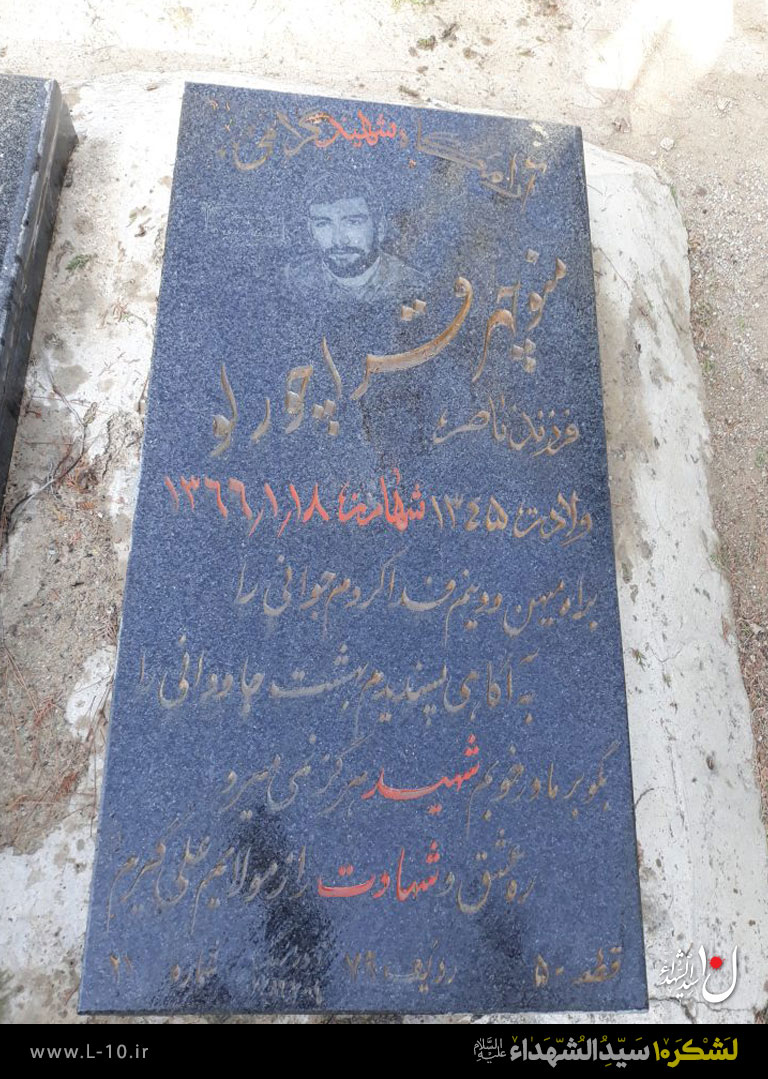 آرامگاه شهید گرامی
منوچهر قراچورلو
فرزند ناصر
ولادت ۱۳۴۵ شهادت ۱۳۶۶٫۱٫۱۸
براه میهن و دینم فدا کردم جوانی را
به آگاهی پسندیدم بهشت جاودانی را
بگو بر مادر خوبم شهید هرگز نمی میرد
ره عشق و شهادت را ز مولایم علی گیرم
قطعه ۵۰ ردیف ۷۹ شماره ۲۱
ل۱۰ سیدالشهداء
www.L-10.ir
لَشْکَر۱۰ سَیِّدُ الشُّهَداء عَلَیهِ السَّلام